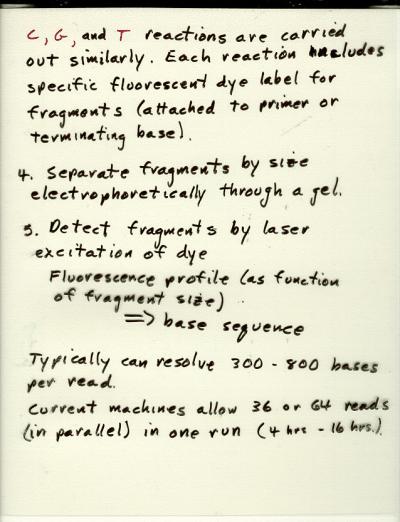 C, G, and T reactions are carried
out similarly. Each reaction includes
specific fluorescent dye label for
fragments (attached to primer or
terminating base).
4. Separate fragments by size
electrophoretically through a gel.
5. Detect fragments by laser
excitation of dye
Fluorescence profile (as function
of fragment size)
=> base sequence
Typically can resolve 300 - 800 bases
per read.
Current machines allow 36 or 64 reads
(in parallel) in one run (4 hrs - 16 hrs.)